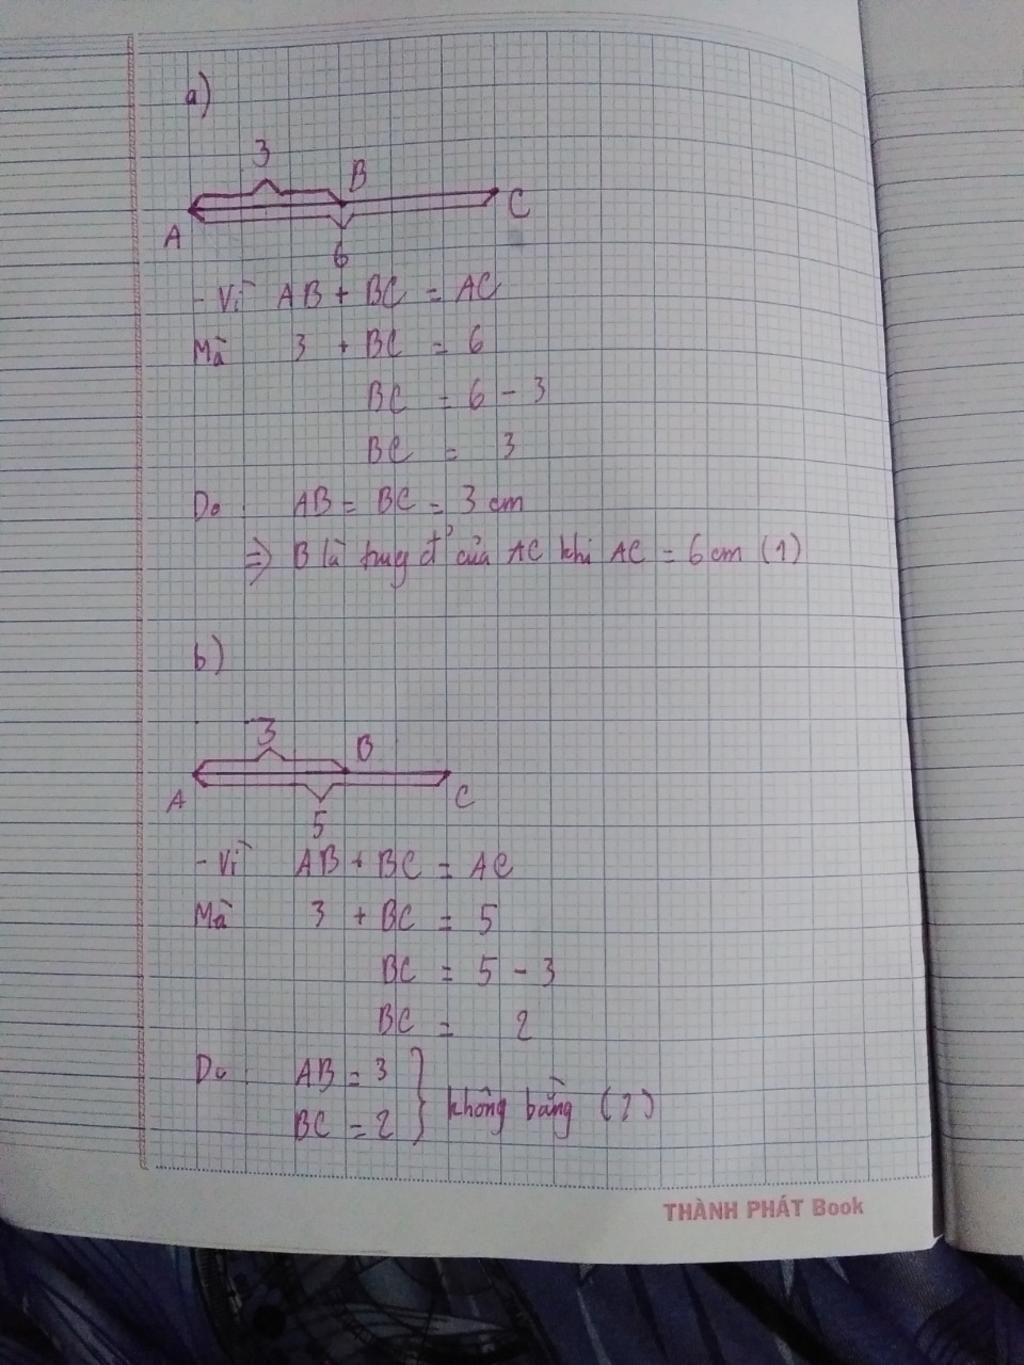 a)
3
B
A
C
6
- Vì AB + BC = AC
Mà 3 + BC = 6
BC = 6 - 3
BC = 3
Do AB = BC = 3 cm
=> B là trung đ' của AC khi AC = 6cm (1)
b)
3
B
A
C
5
- Vì AB + BC = AC
Mà 3 + BC = 5
BC = 5 - 3
BC = 2
Do AB = 3
BC = 2 } không bằng (2)
THÀNH PHÁT Book